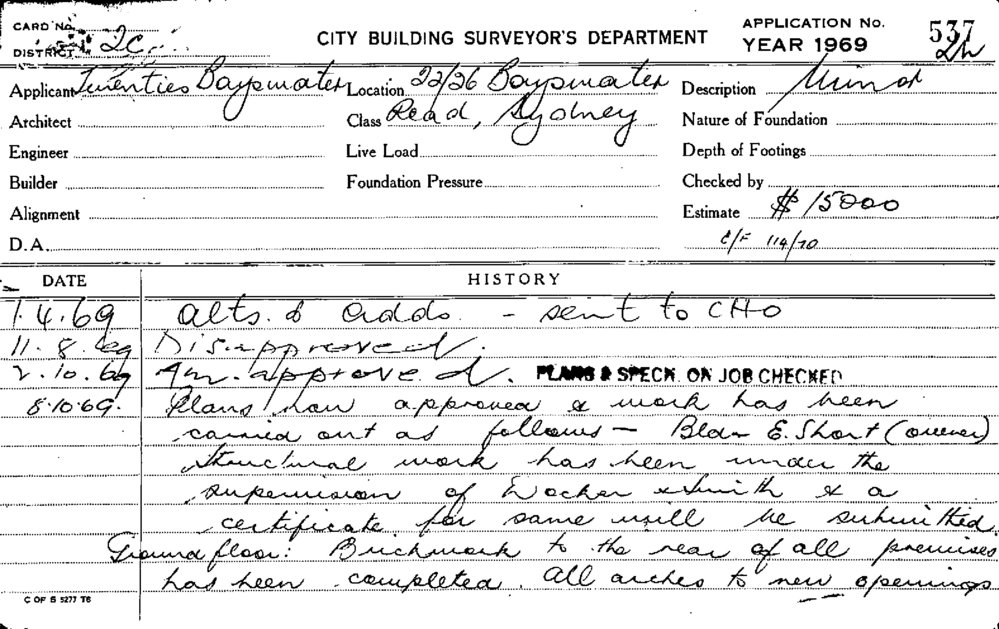 CARD No.
DISTRICT 2C
CITY BUILDING SURVEYOR'S DEPARTMENT
APPLICATION No. 537
YEAR 1969 2h
Applicant Twenties Bayswater
Location 22/26 Bayswater
Description Minor
Architect
Class Road, Sydney
Nature of Foundation
Engineer
Live Load
Depth of Footings
Builder
Foundation Pressure
Checked by
Alignment
Estimate $ 15000
D.A.
C/F 114/70
DATE HISTORY
1.4.69 alts. & adds. - sent to CHO
11.8.69 Disapproved.
2.10.69 Am. approved. PLANS & SPECN. ON JOB CHECKED
8.10.69. Plans now approved & work has been
carried out as follows - Bldr E. Short (owner)
Structural work has been under the
supervision of Wocker & Smith & a
certificate for same will be submitted.
Ground floor: Brickwork to the rear of all premises
has been completed. All arches to new openings
C OF S 5277 T6